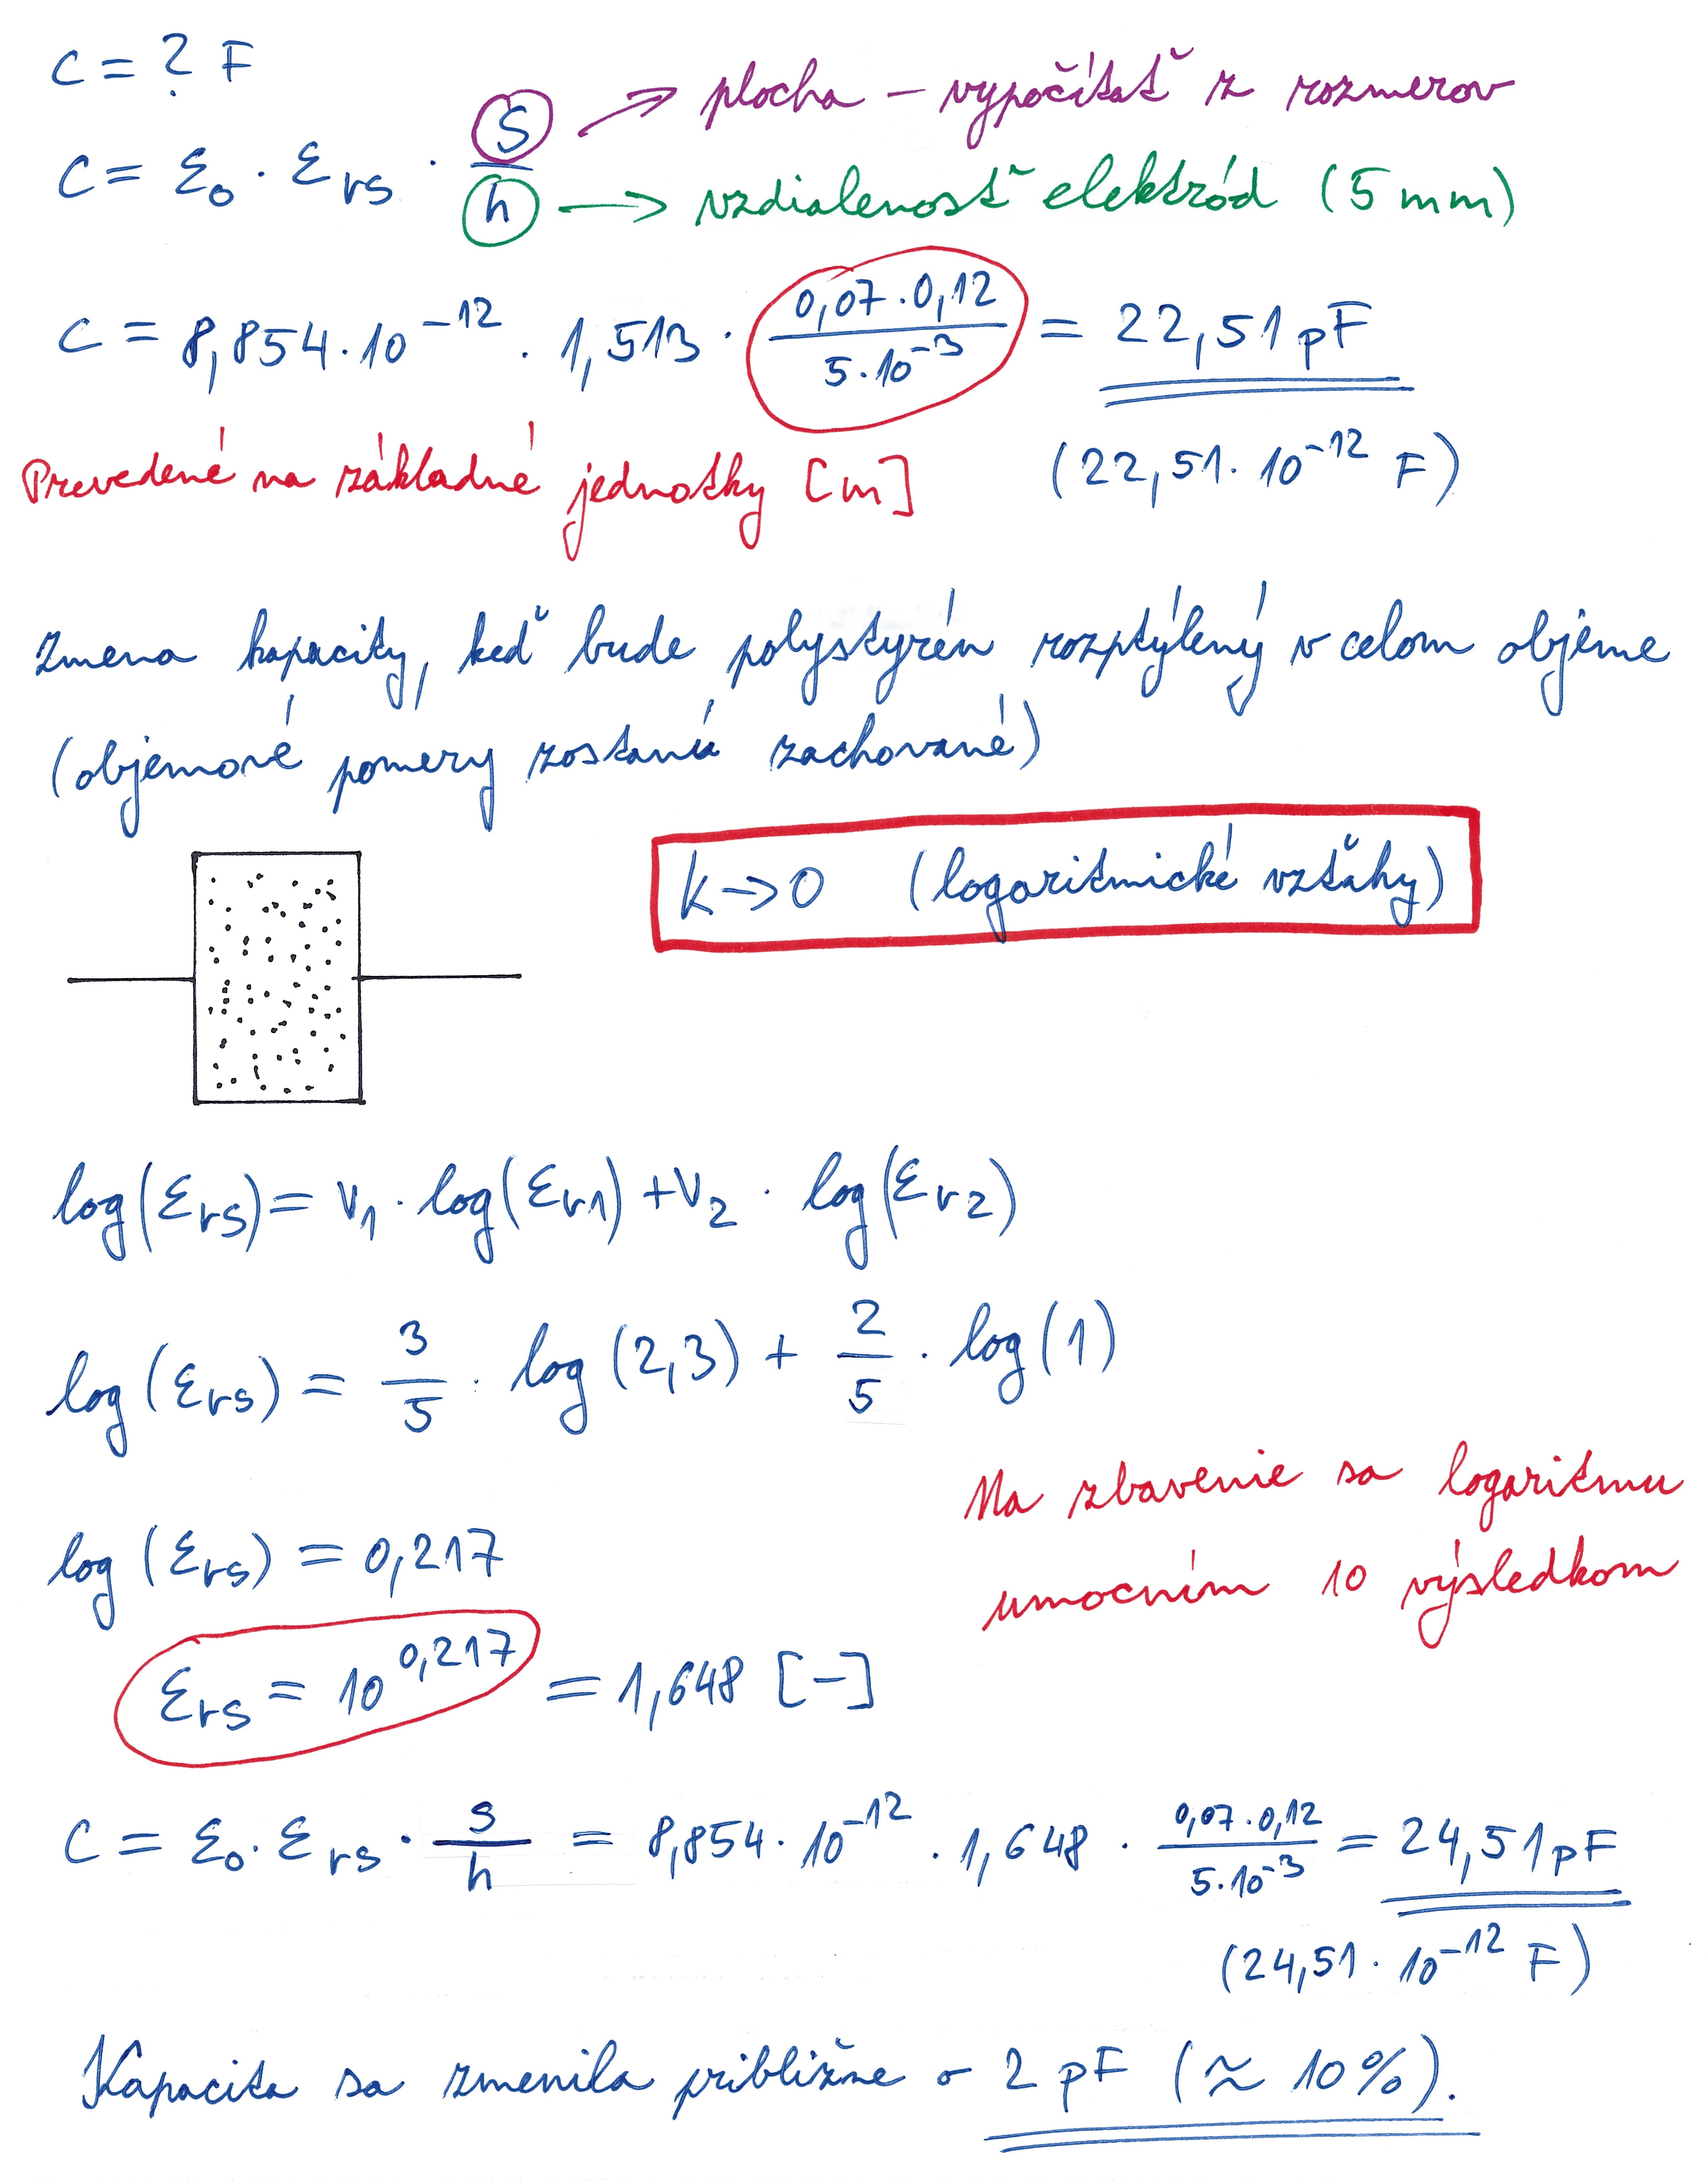 C = ? F
C = ε₀ · ε_rs · S/h
S → plocha – vypočítať z rozmerov
h → vzdialenosť elektród (5 mm)
C = 8,854 · 10⁻¹² · 1,513 · (0,07 · 0,12)/(5 · 10⁻³) = 22,51 pF
Prevedené na základné jednotky [m]
(22,51 · 10⁻¹² F)
Zmena kapacity, keď bude polystyrén rozptýlený v celom objeme
(objemové pomery zostanú zachované)
k → 0 (logaritmické vzťahy)
log(ε_rs) = v₁ · log(ε_r1) + v₂ · log(ε_r2)
log(ε_rs) = 3/5 · log(2,3) + 2/5 · log(1)
Na zbavenie sa logaritmu
umocním 10 výsledkom
log(ε_rs) = 0,217
ε_rs = 10^0,217 = 1,648 [-]
C = ε₀ · ε_rs · S/h = 8,854 · 10⁻¹² · 1,648 · (0,07 · 0,12)/(5 · 10⁻³) = 24,51 pF
(24,51 · 10⁻¹² F)
Kapacita sa zmenila približne o 2 pF (≈ 10%).